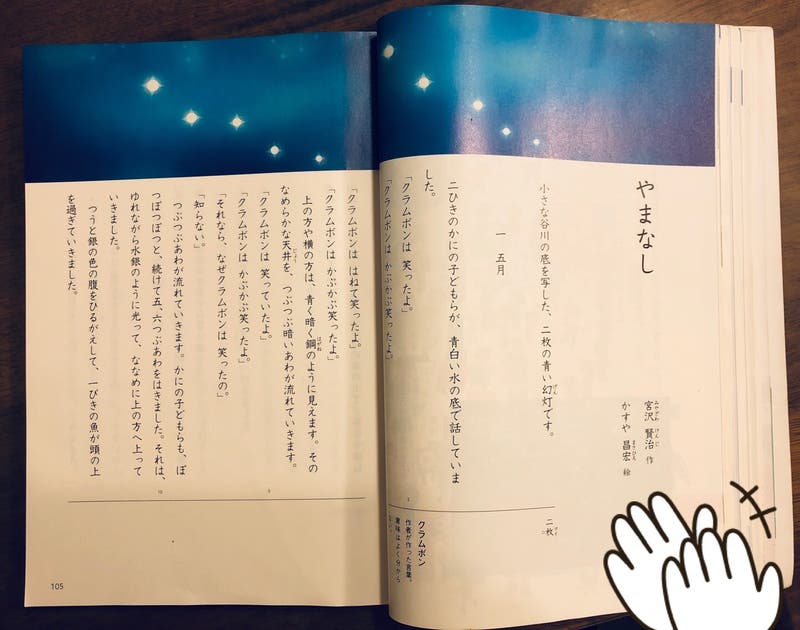 やまなし
宮沢 賢治 作
みやざわ けんじ
かすや 昌宏 絵
まさひろ
小さな谷川の底を写した、二枚の青い幻灯です。
げん
一 五月
二ひきのかにの子どもらが、青白い水の底で話していま
した。
「クラムボンは 笑ったよ。」
「クラムボンは かぷかぷ笑ったよ。」
二枚
クラムボン
作者が作った言葉。
意味はよく分から
「クラムボンは はねて笑ったよ。」
「クラムボンは かぷかぷ笑ったよ。」
上の方や横の方は、青く暗く鋼のように見えます。その
はがね
なめらかな天井を、つぶつぶ暗いあわが流れていきます。
じょう
「クラムボンは 笑っていたよ。」
「クラムボンは かぷかぷ笑ったよ。」
「それなら、なぜクラムボンは 笑ったの。」
「知らない。」
つぶつぶあわが流れていきます。かにの子どもらも、ぽ
つぽつぽつと、続けて五、六つぶあわをはきました。それは、
ゆれながら水銀のように光って、ななめに上の方へ上って
いきました。
つうと銀の色の腹をひるがえして、一ぴきの魚が頭の上
を過ぎていきました。
5
10
105